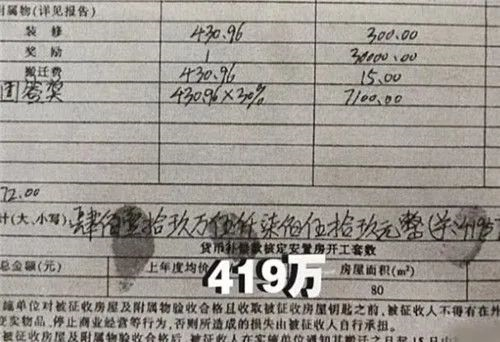 附属物(详见报告)
装修 430.96 300.00
奖励 1 30000.00
搬迁费 430.96 15.00
团签奖 430.96×30% 7100.00
72.00
计(大、小写) 肆佰壹拾玖万伍仟柒佰伍拾玖元整
货币补偿款核定安置房开工套数
总金额(元) 上年度均价 419万 房屋面积(m²)
80
施单位对被征收房屋及附属物验收合格且收取被征收房屋钥匙之前,被征收人不得有在外
变卖物品、停止商业经营等行为,否则所造成的损失由被征收人自行承担。
被征收房屋及附属物验收合格后,被征收人在实施单位通知其搬迁之日起15日